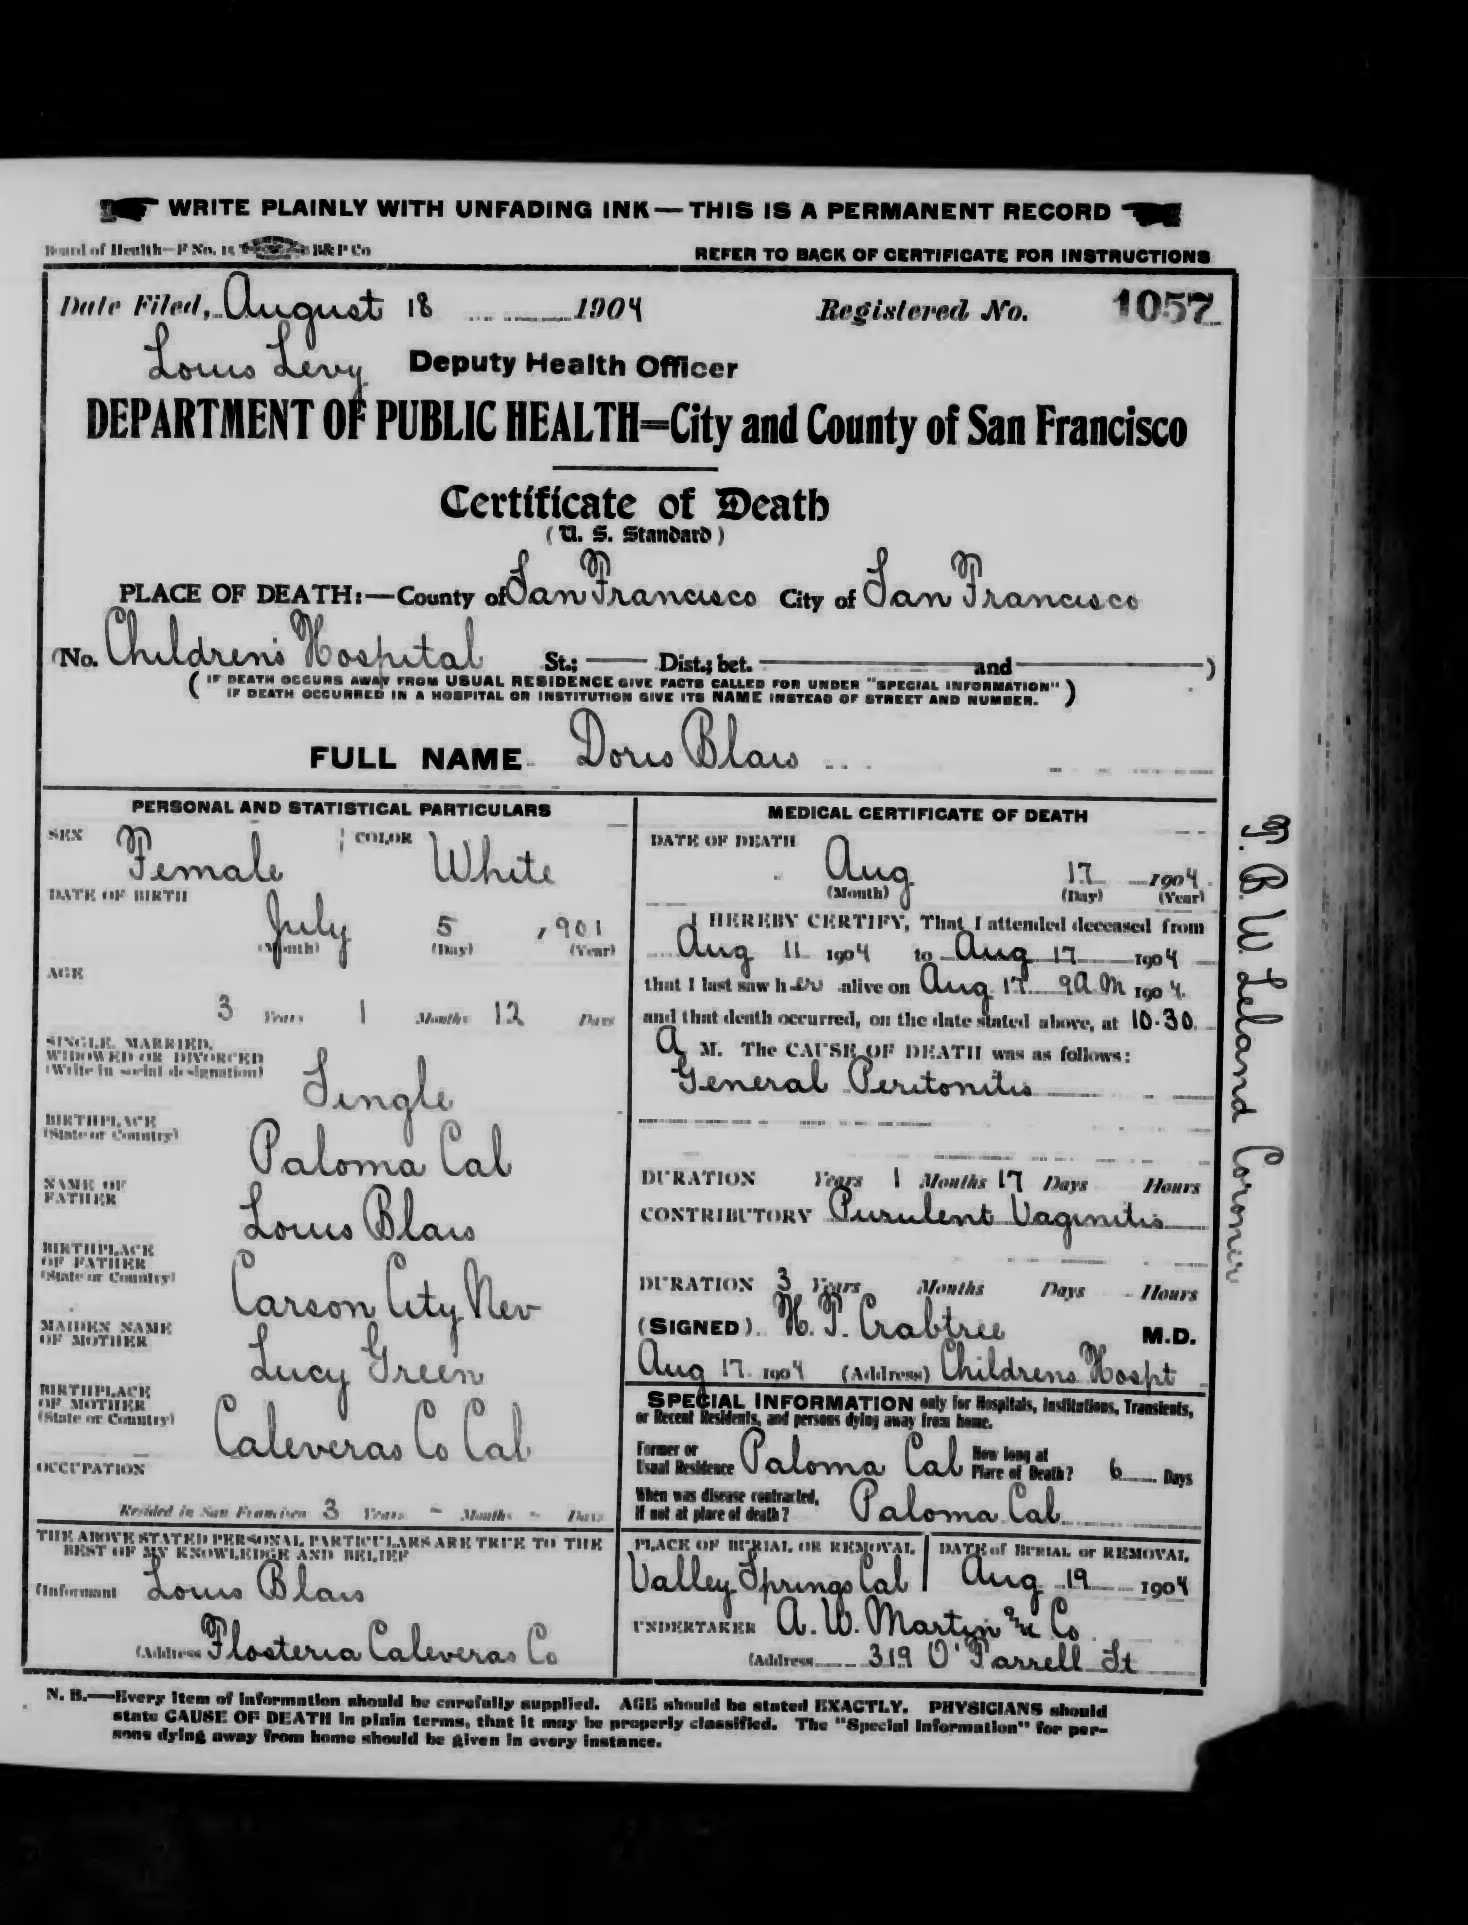 WRITE PLAINLY WITH UNFADING INK — THIS IS A PERMANENT RECORD
Board of Health—F No. 15 B&P Co REFER TO BACK OF CERTIFICATE FOR INSTRUCTIONS
Date Filed, August 18 1904 Registered No. 1057
Louis Levy Deputy Health Officer
DEPARTMENT OF PUBLIC HEALTH=City and County of San Francisco
Certificate of Death
( U. S. Standard )
PLACE OF DEATH:—County of San Francisco City of San Francisco
(No. Children's Hospital St.; —— Dist.; bet. —— and —— )
( IF DEATH OCCURS AWAY FROM USUAL RESIDENCE GIVE FACTS CALLED FOR UNDER "SPECIAL INFORMATION" )
IF DEATH OCCURRED IN A HOSPITAL OR INSTITUTION GIVE ITS NAME INSTEAD OF STREET AND NUMBER.
FULL NAME Doris Blais
PERSONAL AND STATISTICAL PARTICULARS
SEX Female COLOR White
DATE OF BIRTH
July 5 , 901
(Month) (Day) (Year)
AGE
3 Years 1 Months 12 Days
SINGLE, MARRIED,
WIDOWED OR DIVORCED
(Write in social designation) Single
BIRTHPLACE
(State or Country) Paloma Cal
NAME OF
FATHER Louis Blais
BIRTHPLACE
OF FATHER
(State or Country) Carson City Nev
MAIDEN NAME
OF MOTHER Lucy Green
BIRTHPLACE
OF MOTHER
(State or Country) Caleveras Co Cal
OCCUPATION
Resided in San Francisco 3 Years - Months - Days
THE ABOVE STATED PERSONAL PARTICULARS ARE TRUE TO THE
BEST OF MY KNOWLEDGE AND BELIEF
(Informant Louis Blais
(Address Flosteria Caleveras Co
MEDICAL CERTIFICATE OF DEATH
DATE OF DEATH
Aug 17 1904
(Month) (Day) (Year)
I HEREBY CERTIFY, That I attended deceased from
Aug 11 1904 to Aug 17 1904
that I last saw her alive on Aug 17 9 A M 1904.
and that death occurred, on the date stated above, at 10.30
A M. The CAUSE OF DEATH was as follows:
General Peritonitis
DURATION Years 1 Months 17 Days Hours
CONTRIBUTORY Purulent Vaginitis
DURATION 3 Years Months Days Hours
(SIGNED) H. P. Crabtree M.D.
Aug 17 1904 (Address) Childrens Hospt
SPECIAL INFORMATION only for Hospitals, Institutions, Transients,
or Recent Residents, and persons dying away from home.
Former or
Usual Residence Paloma Cal How long at
Place of Death? 6 Days
When was disease contracted,
If not at place of death? Paloma Cal
PLACE OF BURIAL OR REMOVAL DATE of BURIAL or REMOVAL
Valley Springs Cal Aug 19 1904
UNDERTAKER A. W. Martin & Co
(Address 319 O'Farrell St
N. B.—Every item of information should be carefully supplied. AGE should be stated EXACTLY. PHYSICIANS should
state CAUSE OF DEATH in plain terms, that it may be properly classified. The "Special Information" for per-
sons dying away from home should be given in every instance.
T. B. W. Leland Coroner